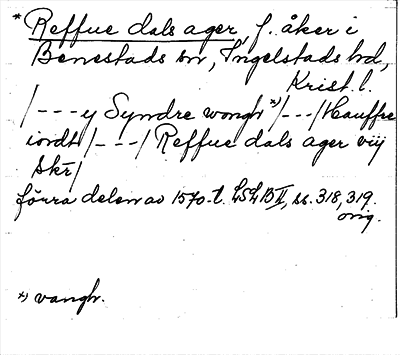 * Reffue dals ager, f. åker i
Benestads sn, Ingelstads hd,
Krist. l.
/---y Syndre wongh *)/---/Hauffre
iordt/---/Reffue dals ager viij
skr/
förra delen av 1570-t. LSLB II, ss. 318, 319.
orig.
*) vangh.